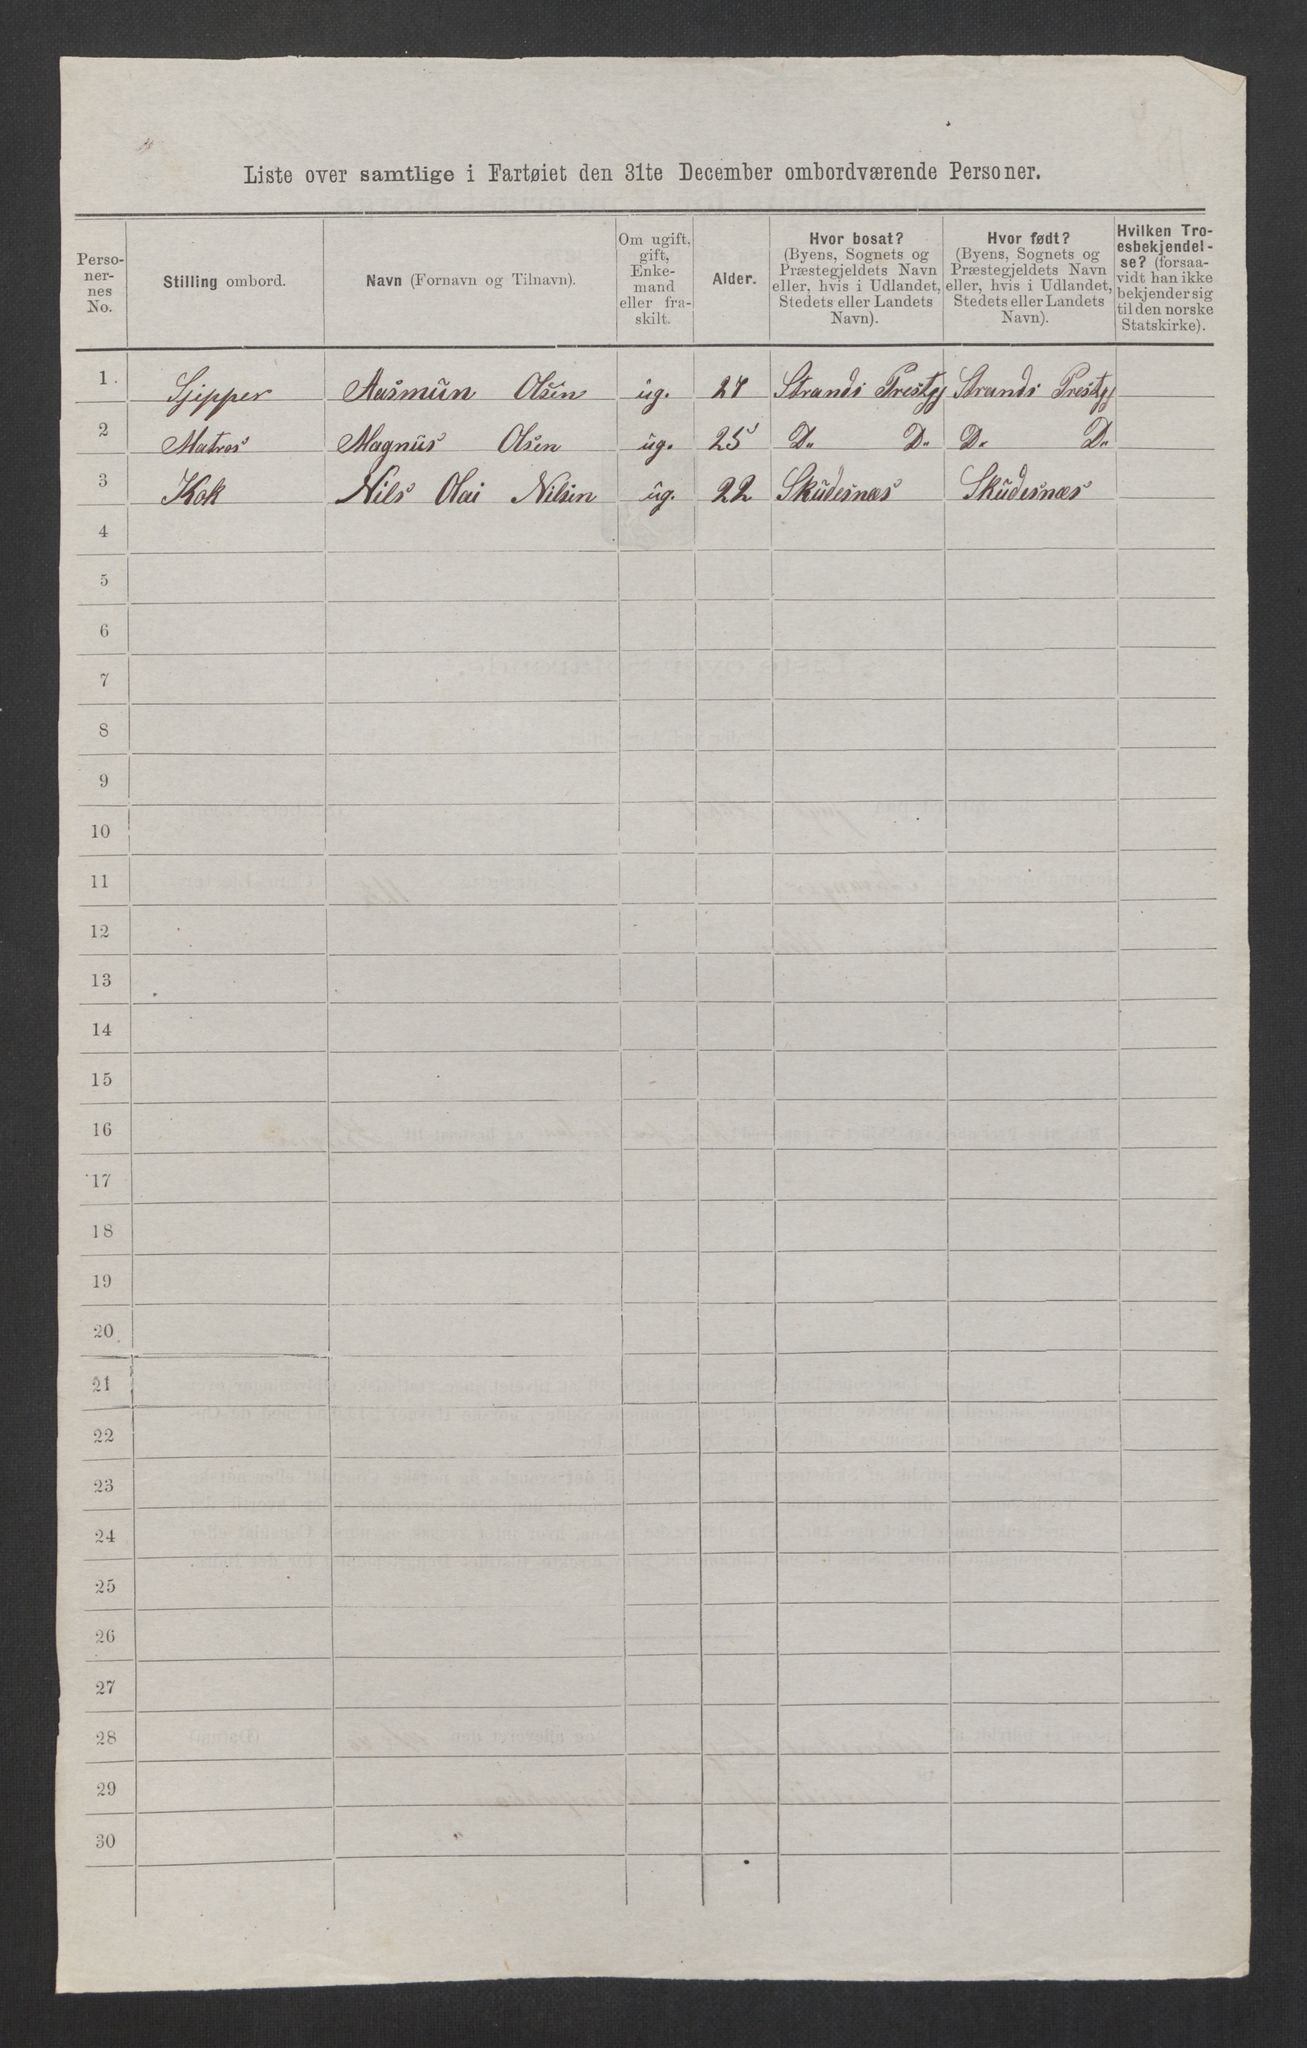 Liste over samtlige i Fartøiet den 31te December ombordværende Personer.
Perso-
ner-
nes
No.
Stilling ombord.
Navn (Fornavn og Tilnavn).
Om ugift,
gift,
Enke-
mand
eller fra-
skilt.
Alder.
Hvor bosat?
(Byens, Sognets og
Præstegjeldets Navn
eller, hvis i Udlandet,
Stedets eller Landets
Navn).
Hvor født?
(Byens, Sognets og
Præstegjeldets Navn
eller, hvis i Udlandet,
Stedets eller Landets
Navn).
Hvilken Tro-
esbekjendel-
se? (forsaa-
vidt han ikke
bekjender sig
til den norske
Statskirke).
1 Sjipper Aasmün Olsen üg. 27 Strands Prestgj Strands Prestgj
2 Matros Magnüs Olsen üg. 25 D.. D.. D.. D..
3 Kok Nils Olai Nilsen üg. 22 Sküdesnæs Sküdesnæs
4
5
6
7
8
9
10
11
12
13
14
15
16
17
18
19
20
21
22
23
24
25
26
27
28
29
30